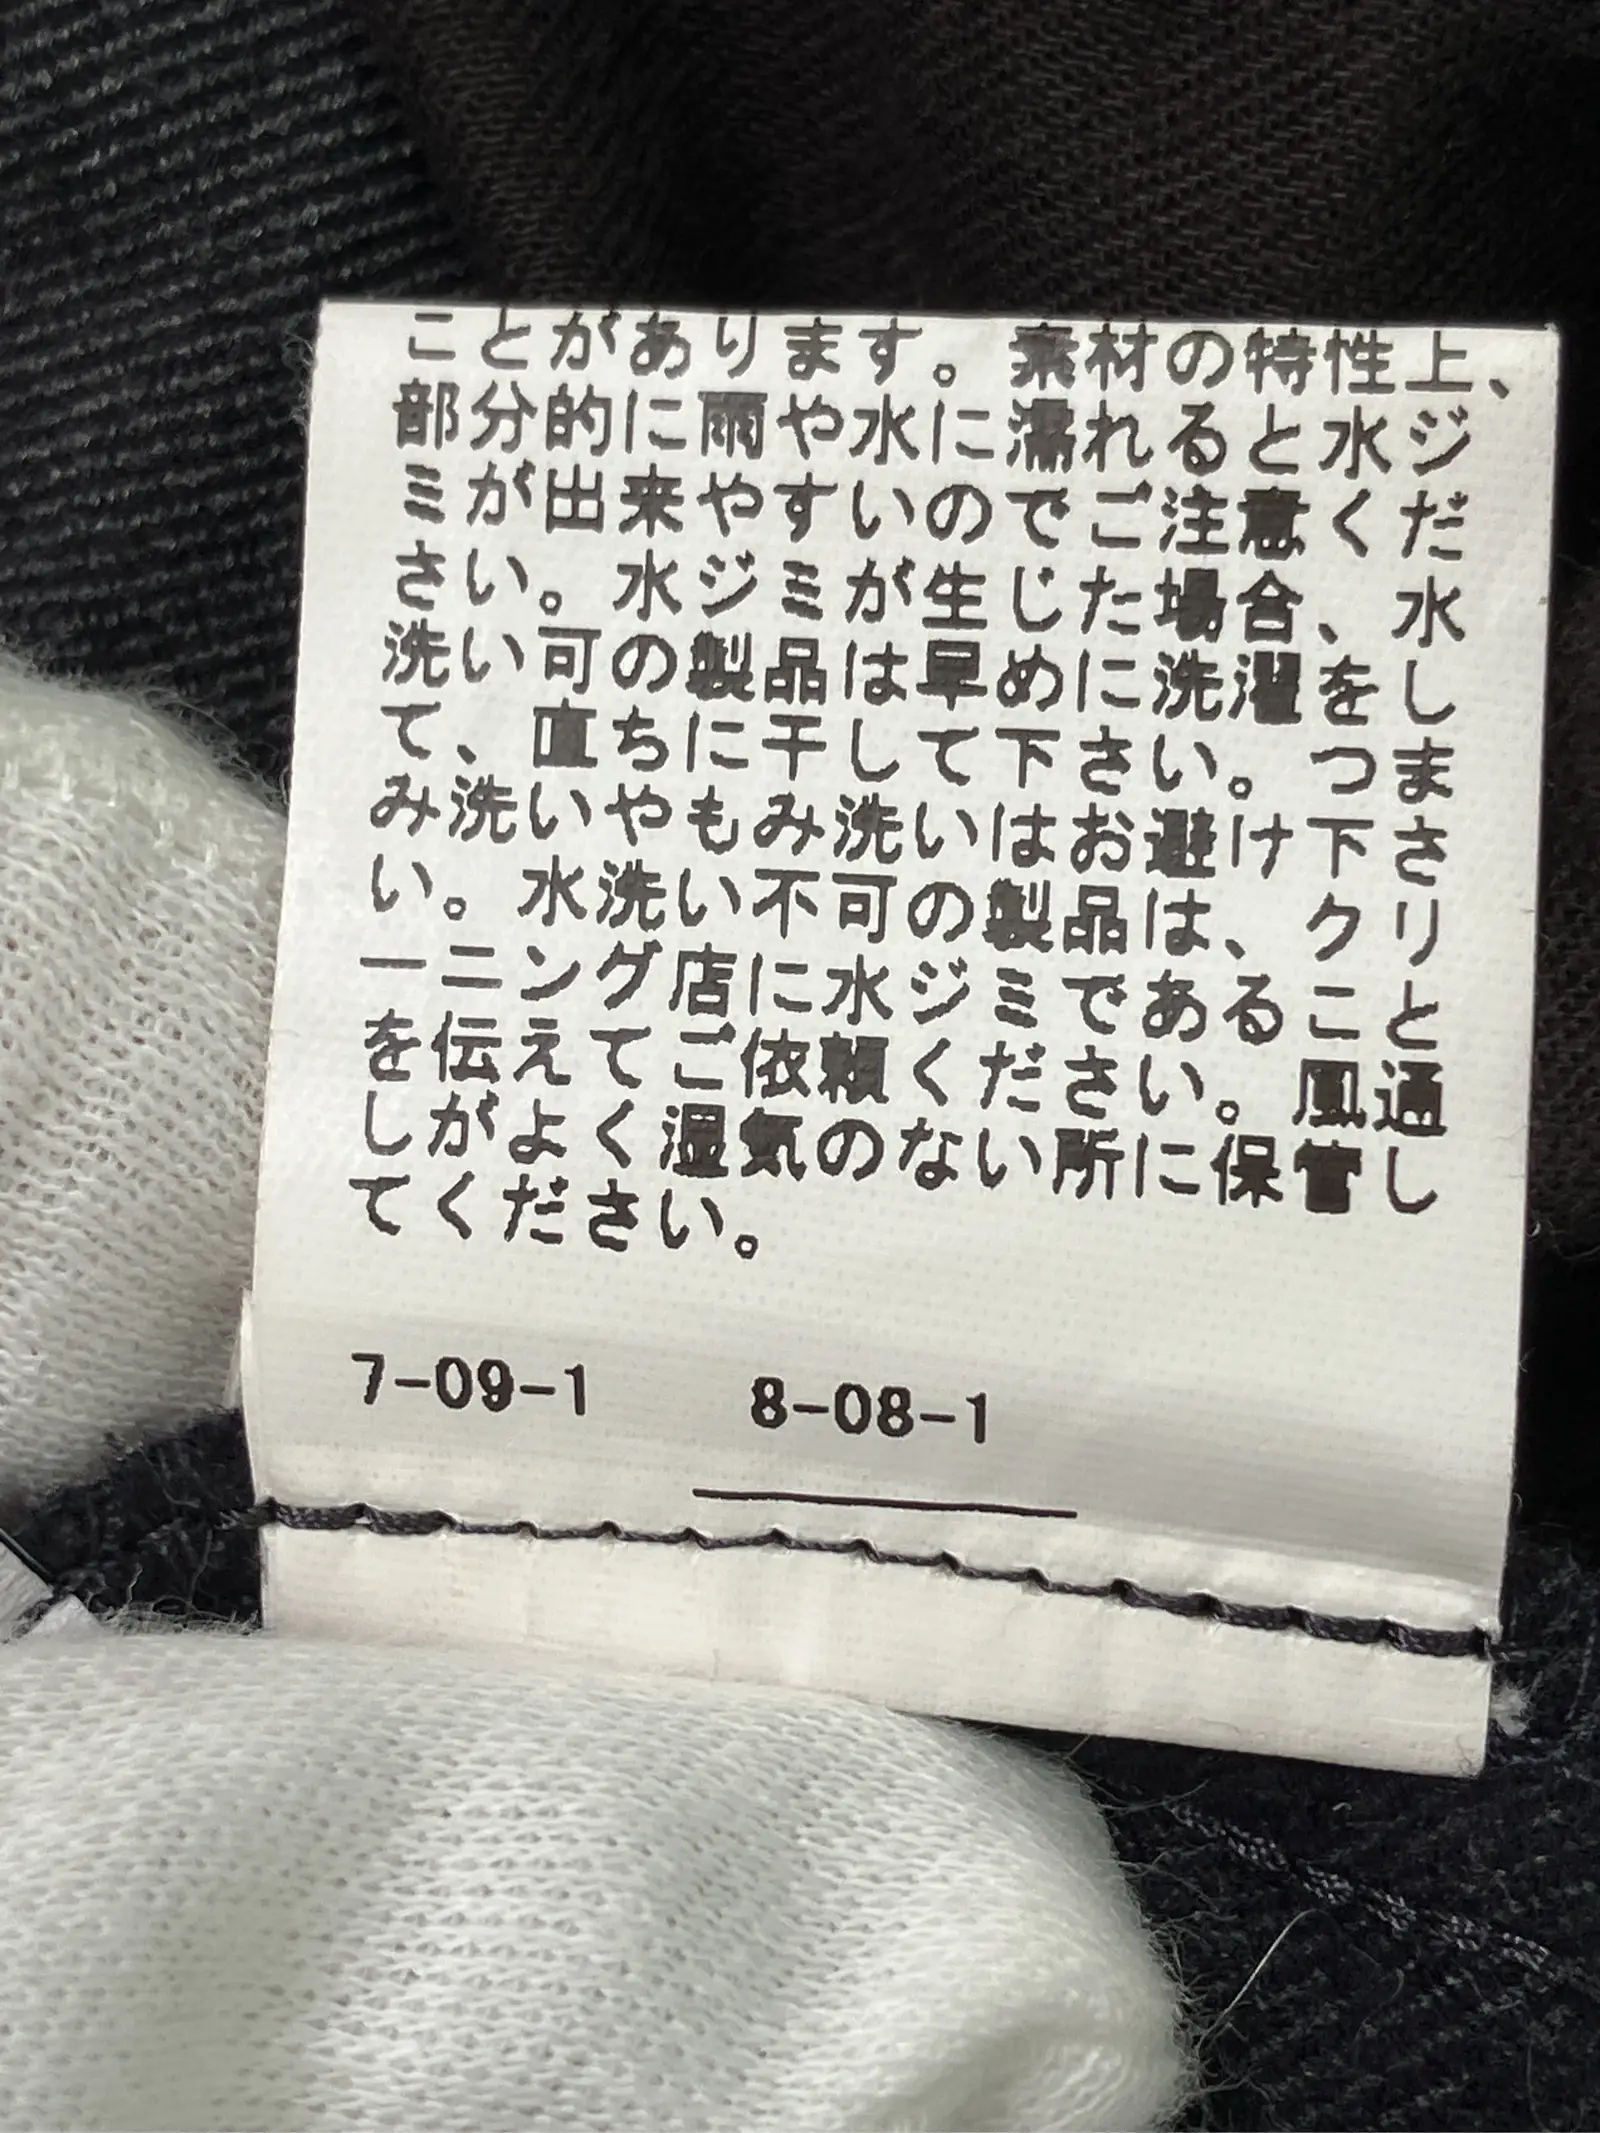 ことがあります。素材の特性上、
部分的に雨や水に濡れると水ジ
ミが出来やすいのでご注意くだ
さい。水ジミが生じた場合、水
洗い可の製品は早めに洗濯をし
て、直ちに干して下さい。つま
み洗いやもみ洗いはお避け下さ
い。水洗い不可の製品は、クリ
ーニング店に水ジミであること
を伝えてご依頼ください。風通
しがよく湿気のない所に保管し
てください。
7-09-1 8-08-1